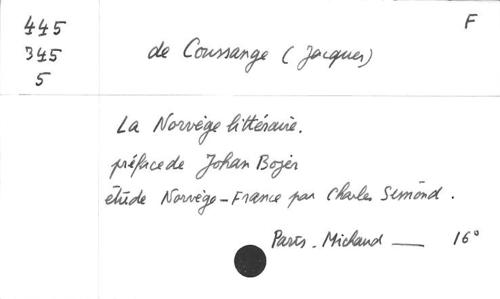 445
345
5
F
de Coussange (Jacques)
La Norvège littéraire.
préface de Johan Bojer
étude Norvège - France par Charles Simond.
Paris. Michaud — 16°